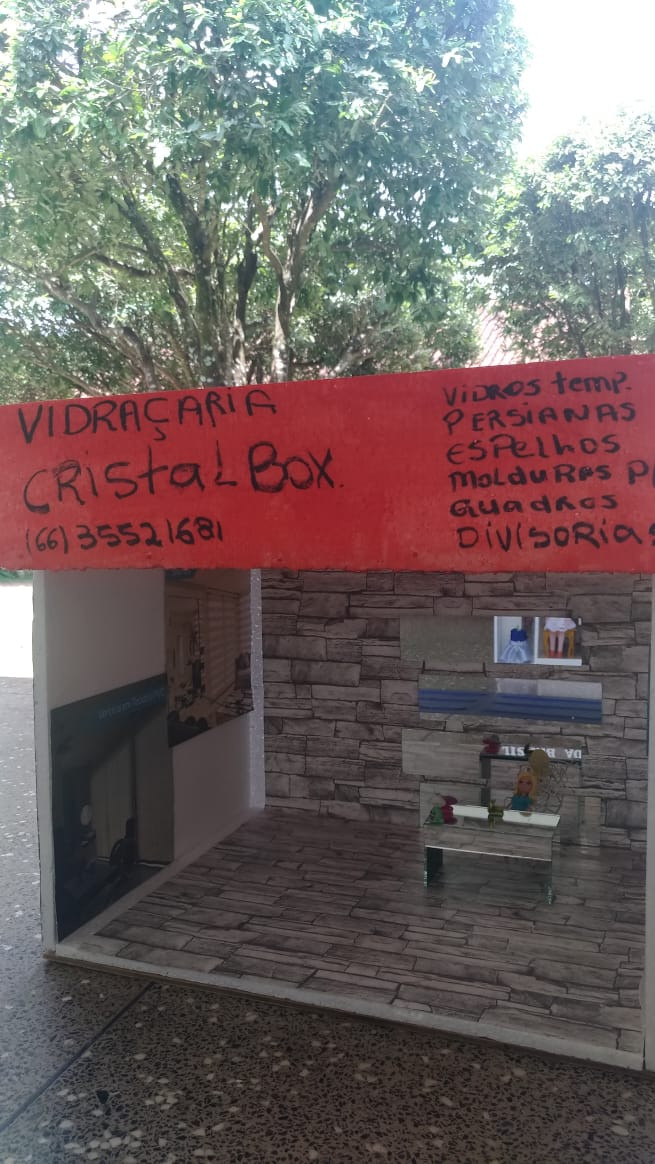 VIDRAÇARIA
CRistaL BOX.
(66) 35521681
ViDROS temp.
PERSIANAS
ESPelhos
MolduRAS P/
QuadRos
DiViSORias